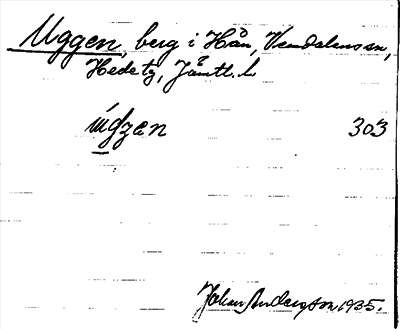 Uggen, berg i Hån, Vemdalens sn,
Hede tg, Jämtl. l.
úgzen 303
Johan Anderson, 1935.